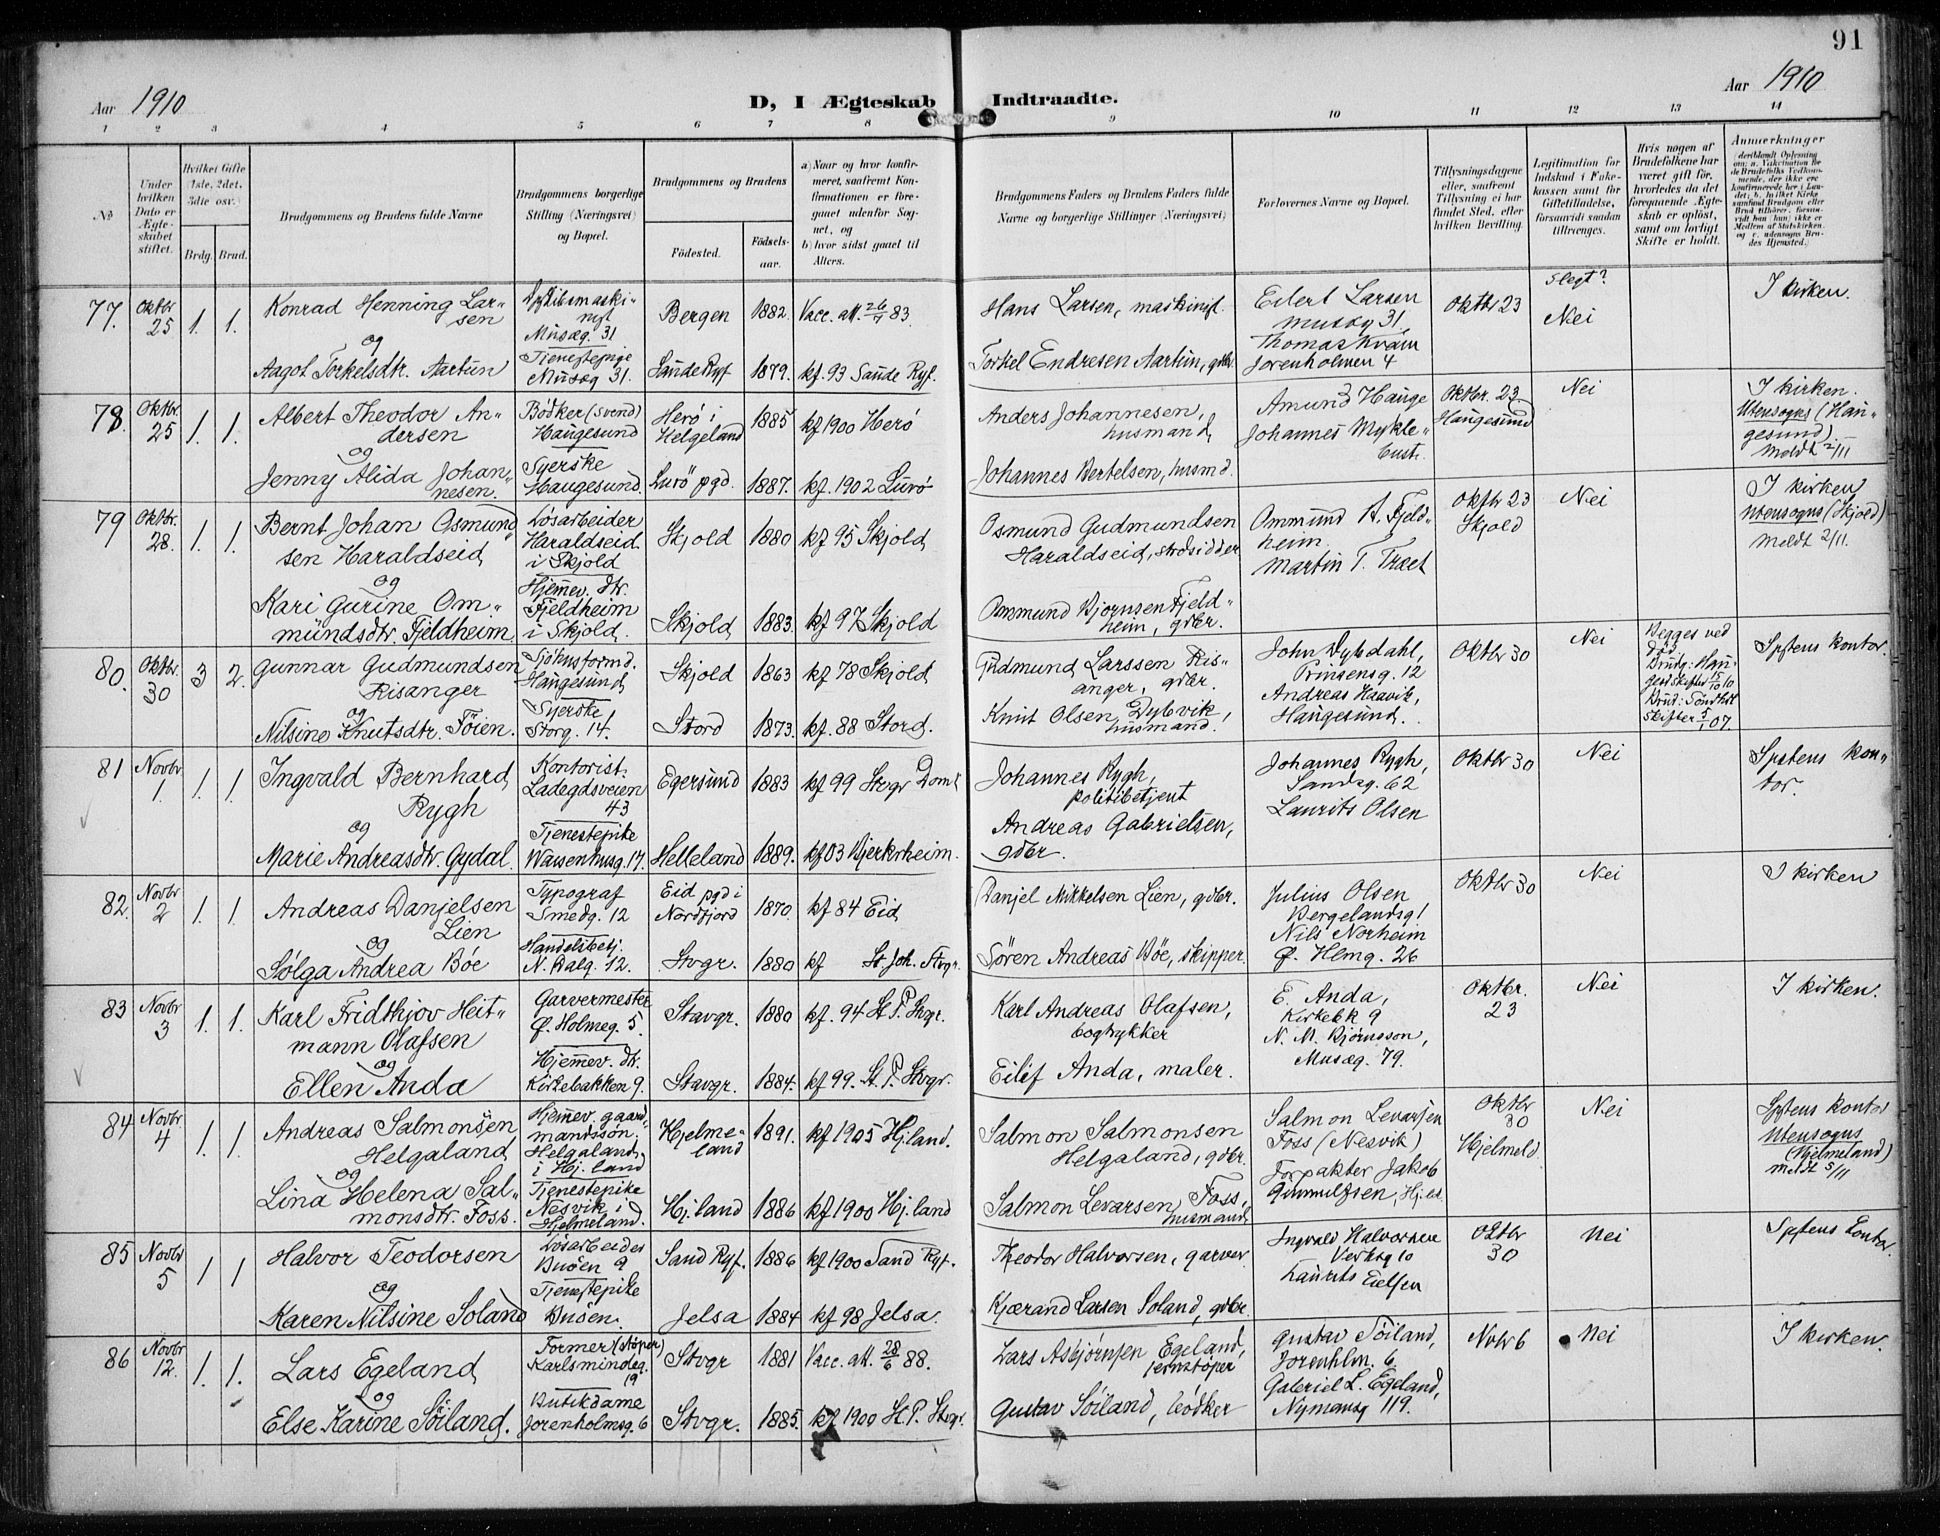 91
Aar 1910
D, I Ægteskab Indtraadte.
Aar 1910
1 2 3 4 5 6 7 8 9 10 11 12 13 14
No
Under hvilken Dato er Ægteskabet stiftet.
Hvilket Gifte 1ste, 2det, 3die osv.
Brdg. Brud.
Brudgommens og Brudens fulde Navne
Brudgommens borgerlige Stilling (Næringsvei) og Bopæl.
Brudgommens og Brudens
Födested.
Födsels-aar.
a) Naar og hvor konfirmeret, saafremt Konfirmationen er foregaaet udenfor Sognet, og
b) hvor sidst gaaet til Alters.
Brudgommens Faders og Brudens Faders fulde Navne og borgerlige Stillinger (Næringsvei)
Forlovernes Navne og Bopæl.
Tillysningsdagene eller, saafremt Tillysning ei har fundet Sted, efter hvilken Bevilling.
Legitimation for Indskud i Enkekassen samt for Giftetilladelse, forsaavidt saadan tiltrænges.
Hvis nogen af Brudefolkene har været gift för, hvorledes da det foregaaende Ægteskab er oplöst, samt om lovligt Skifte er holdt.
Anmærkninger
77. Oktbr 25 1. 1.
Konrad Henning Larsen
og
Aagot Torkelsdtr. Aartun
Musæg. 31
Tjenestepige
Musæg 31.
Bergen 1882. Vacc. att. 26/7 83.
Sande Ryf 1879. kf. 93 Sande Ryf.
Hans Larsen, maskinist.
Torkel Endresen Aartun, gdbr.
Eilert Larsen
Musæg 31.
Thomas Kvam
Jorenholmen 4
Oktbr 23
Slegt?
Nei
I kirken.
78. Oktbr. 25 1. 1.
Albert Theodor Andersen
og
Jenny Alida Johannesen.
Bödker (svend)
Haugesund
Syerske
Haugesund.
Herö i Helgeland 1885 kf 1900 Herö
Lurö pgd. 1887. kf. 1902 Lurö
Anders Johannesen, husmand
Johannes Bertelsen, husmd.
Amund Hauge
Johannes Myklebust.
Oktbr. 23
Haugesund
Nei
I kirken.
Utensogns (Haugesund)
meldt 2/11
79 Oktbr. 28. 1. 1.
Bernt Johan Osmundsen Haraldseid
og
Kari Gurine Ommundsdtr. Fjeldheim.
Lösarbeider
Haraldseid
i Skjold
Hjemmev. dtr.
Fjeldheim
i Skjold.
Skjold 1880 kf 95 Skjold
Skjold 1883. kf 97 Skjold
Osmund Gudmundsen Haraldseid, strandsidder
Ommund Bjornsen Fjeldheim, gdbr.
Ommund A. Fjeldheim.
Martin T. Træet
Oktbr 23
Skjold
Nei
I kirken
Utensogns (Skjold)
meldt 2/11.
80. Oktbr. 30 3 2.
Gunnar Gudmundsen Risanger
og
Nilsine Knutsdtr. Föien.
Haugesund
Syerske
Storg. 14.
Skjold 1863 kf 78 Skjold
Stord 1873. kf. 88 Stord.
Gudmund Larssen Risanger, gdbr.
Knut Olsen Dybvik, husmand.
John Dybdahl,
Prinsensg. 12
Andreas Haavik,
Haugesund.
Oktbr 30
Nei
Begges ved död.
Brudg: Haugesd skifter 15/10 10
skifter 5/1 07.
Sptens kontor.
81 Novbr 1. 1. 1.
Ingvald Bernhard Rygh
og
Marie Andreasdtr. Gydal.
Kontorist.
Ladegdsveien 43
Tjenestepike
Waisenhusg. 17.
Egersund 1883 kf 99 Stvgr Domk
Helleland 1889. kf 03 Bjerkrheim.
Johannes Rygh, politibetjent
Andreas Gabrielsen, gdbr.
Johannes Rygh,
Sandsg. 62
Laurits Olsen
Oktbr 30
Nei
Sptens kontor.
82. Novbr 2 1. 1.
Andreas Danjelsen Lien
og
Solga Andrea Böe
Typograf
Smedg. 12
Handelsbetj.
N. Dalg. 12.
Eid pgd i Nordfjord 1870. kf 84 Eid
Stvgr. 1880 kf St. Joh. Stvgr.
Danjel Mikkelsen Lien, gdbr.
Sören Andreas Böe, skipper.
Julius Olsen
Bergelandsg 1
Nils Norheim
Ø. Hlmg. 26
Oktbr 30
Nei
I kirken
83 Novbr 3 1. 1.
Karl Fridthjov Heitmann Olafsen
og
Ellen Anda
Garvermester
Ø. Holmeg. 5
Hjemmev. dtr.
Kirkebakken 9.
Stavgr. 1880 kf. 94 St. P. Stvgr.
Stavgr. 1884. kf 99. St. P. Stvgr.
Karl Andreas Olafsen, bogtrykker
Eilif Anda, maler.
E. Anda,
Kirkebk 9
N. M. Bjørnsson,
Musæg. 79.
Oktbr. 23
Nei
I kirken.
84 Novbr 4 1. 1.
Andreas Salmonsen Helgaland
og
Lina Helena Salmonsdtr. Foss.
Hjemmev. gaardmandssön.
Helgaland
i Hj. land
Tjenestepike
Nesvik i
Hjelmeland.
Hjelmeland 1891. kf 1905 Hj.land.
Hj.land 1886 kf 1900 Hj.land
Salmon Salmonsen Helgaland, gdbr.
Salmon Levarsen Foss, husmand
Salmon Levarsen
Foss (Nesvik)
Forpakter Jakob
Oktbr 30
Hjelmeld.
Nei
Sptens kontor
Utensogns
(Hjelmeland)
meldt 5/11
85 Novbr 5 1 1
Halvor Teodorsen
og
Karen Nilsine Soland
Lösarbeider
Buöen 9
Tjenestepike
Buöen.
Sand Ryf. 1886 kf 1900 Sand Ryf.
Jelsa 1884 kf 98 Jelsa.
Theodor Halvorsen, garver
Kjærand Larsen Soland, gdbr.
Ingvald Halvorsen
Verksg 10
Laurits Eielsen
Oktbr 30
Nei
Sptens kontor.
86 Novbr 12. 1. 1.
Lars Egeland
og
Else Karine Söiland.
Former (støper)
Karlsmindeg. 19
Butikdame
Jorenholmsg. 6
Stvgr 1881 Vacc. att. 28/6 88.
Stvgr. 1885. kf 1900 St. P. Stvgr.
Lars Asbjørnsen Egeland, jernstöper
Gustav Söiland, bödker
Gustav Söiland,
Jorenhlm. 6
Gabriel L. Egeland,
Nymansg 119.
Novbr 6
Nei
I kirken.